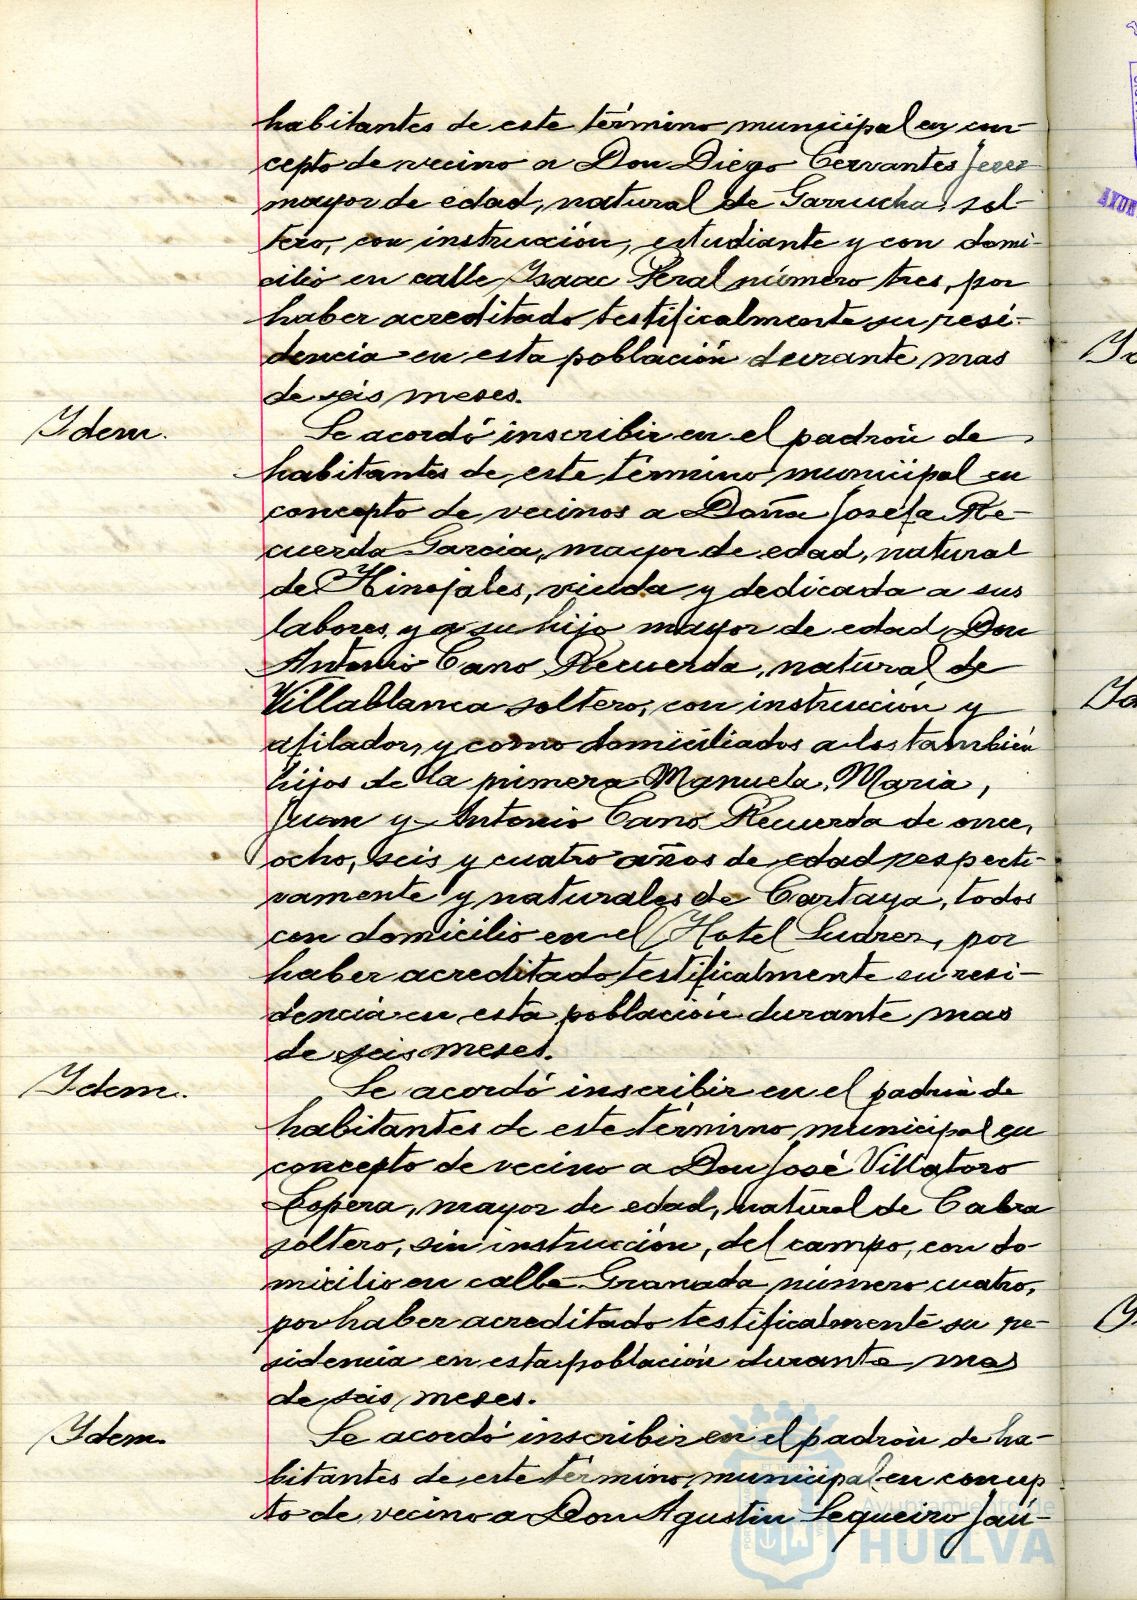 habitantes de este término municipal en con-
cepto de vecino a Don Diego Cervantes Jerez
mayor de edad, natural de Garrucha, sol-
tero, con instrucción, estudiante y con domi-
cilio en calle Isaac Peral número tres, por
haber acreditado testificalmente su resi-
dencia en esta población durante mas
de seis meses.
Idem.
Se acordó inscribir en el padrón de
habitantes de este término municipal en
concepto de vecinos a Doña Josefa Re-
cuerda Garcia, mayor de edad, natural
de Hinojales, viuda y dedicada a sus
labores, y a su hijo mayor de edad Don
Antonio Cano Recuerda, natural de
Villablanca soltero, con instrucción y
afilador, y como domiciliados a los también
hijos de la primera Manuela, Maria,
Juan y Antonio Cano Recuerda de once,
ocho, seis y cuatro años de edad respecti-
vamente y naturales de Cartaya, todos
con domicilio en el Hotel Suárez, por
haber acreditado testificalmente su resi-
dencia en esta población durante mas
de seis meses.
Idem.
Se acordó inscribir en el padrón de
habitantes de este término municipal en
concepto de vecino a Don José Villatoro
Espera, mayor de edad, natural de Cabra
soltero, sin instrucción, del campo, con do-
micilio en calle Granada número cuatro,
por haber acreditado testificalmente su re-
sidencia en esta población durante mas
de seis meses.
Idem.
Se acordó inscribir en el padrón de ha-
bitantes de este término municipal en concep
to de vecino a Don Agustin Sequeiro Jau-
Ayuntamiento de
HUELVA